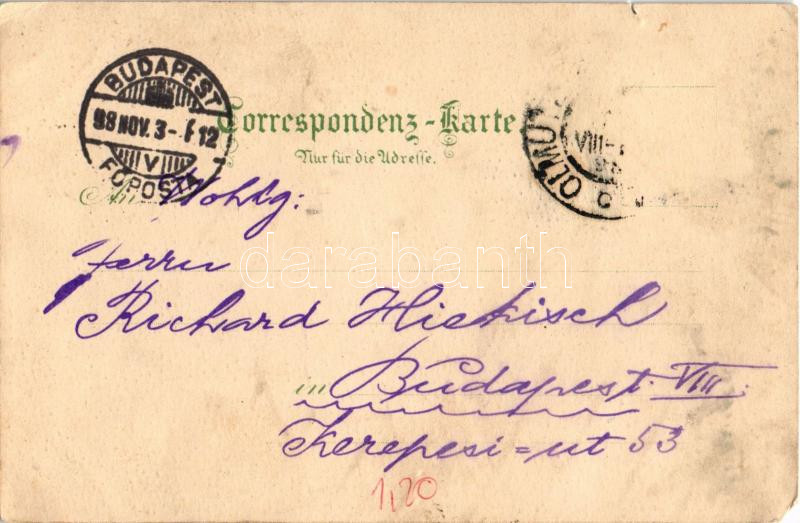 BUDAPEST
98 NOV. 3 -
V
FŐPOSTA
OLMÜ
VIII-
Correspondenz-Karte
Nur für die Adresse.
An Wohlg:
Herrn
Richard Hiekisch
in Budapest. VIII.
Kerepesi=ut 53
1,20
darabanth